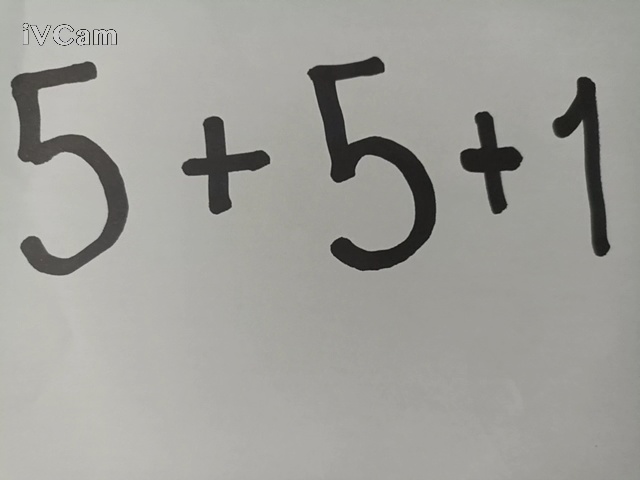 iVCam
5 + 5 + 1